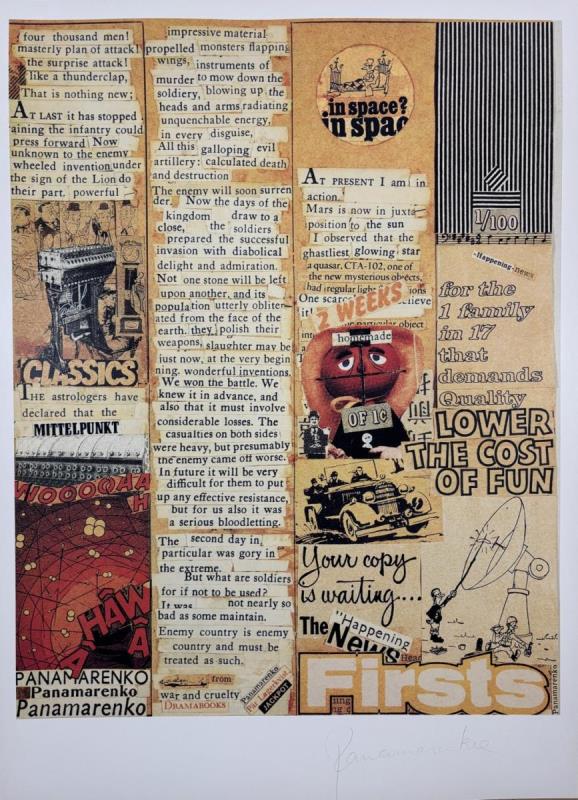 four thousand men!
masterly plan of attack!
the surprise attack!
like a thunderclap,
That is nothing new;
AT LAST it has stopped
aining the infantry could
press forward Now
unknown to the enemy
wheeled invention under
the sign of the Lion do
their part. powerful
CLASSICS
THE astrologers have
declared that the
MITTELPUNKT
HAW
PANAMARENKO
Panamarenko
Panamarenko
impressive material
propelled monsters flapping
wings, instruments of
murder to mow down the
soldiery, blowing up the
heads and arms radiating
unquenchable energy,
in every disguise,
All this galloping evil
artillery: calculated death
and destruction
The enemy will soon surren
der. Now the days of the
kingdom draw to a
close, the soldiers
prepared the successful
invasion with diabolical
delight and admiration.
Not one stone will be left
upon another, and its
population utterly obliter-
ated from the face of the
earth. they polish their
weapons, slaughter may be
just now, at the very begin
ning. wonderful inventions.
We won the battle. We
knew it in advance, and
also that it must involve
considerable losses. The
casualties on both sides
were heavy, but presumably
the enemy came off worse.
In future it will be very
difficult for them to put
up any effective resistance,
but for us also it was
a serious bloodletting.
The second day in
particular was gory in
the extreme.
But what are soldiers
for if not to be used?
It was not nearly so
bad as some maintain.
Enemy country is enemy
country and must be
treated as such.
from
war and cruelty
DRAMABOOKS
Panamarenko
JACKPOT
in space?
in spac
AT PRESENT I am in
action.
Mars is now in juxta
position to the sun
I observed that the
ghastliest glowing star
a quasar, CTA-102, one of
the new mysterious objects,
had regular light
One scarc
2 WEEKS
homemade
OF 1¢
Your copy
is waiting...
The "Happening
News
Firsts
1/100
"Happening news
for the
1 family
in 17
that
demands
Quality
LOWER
THE COST
OF FUN
Panamarenko